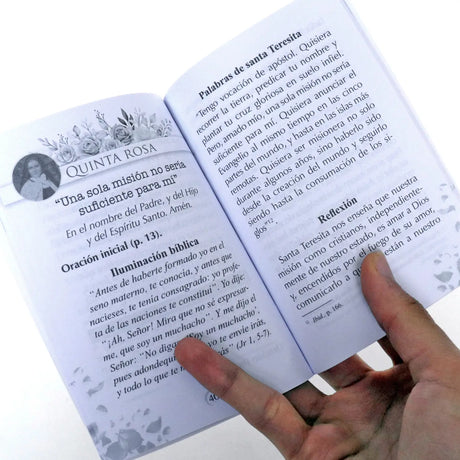 QUINTA ROSA
"Una sola misión no sería
suficiente para mí"
En el nombre del Padre, y del Hijo
y del Espíritu Santo. Amén.
Oración inicial (p. 13).
Iluminación bíblica
"Antes de haberte formado yo en el
seno materno, te conocía, y antes que
nacieses, te tenía consagrado: yo profe-
ta de las naciones te constituí". Yo dije:
"¡Ah, Señor! Mira que no sé expresar-
me, que soy un muchacho". Y me dijo el
Señor: "No digas: Soy un muchacho,
pues adondequiera que yo te envíe irás,
y todo lo que te mande dirás" (Jr 1, 5-7).
Palabras de santa Teresita
"Tengo vocación de apóstol. Quisiera
recorrer la tierra, predicar tu nombre y
plantar tu cruz gloriosa en suelo infiel.
Pero, amado mío, una sola misión no sería
suficiente para mí. Quisiera anunciar el
Evangelio al mismo tiempo en las cinco
partes del mundo, y hasta en las islas más
remotas. Quisiera ser misionera no sólo
durante algunos años, sino haberlo sido
desde la creación del mundo y seguirlo
siendo hasta la consumación de los si-
glos"
Reflexión
Santa Teresita nos enseña que nuestra
misión como cristianos, independiente-
mente de nuestro estado, es amar a Dios
y, encendidos por el fuego de su amor,
comunicarlo a están a nuestro
Ibid., p. 166.